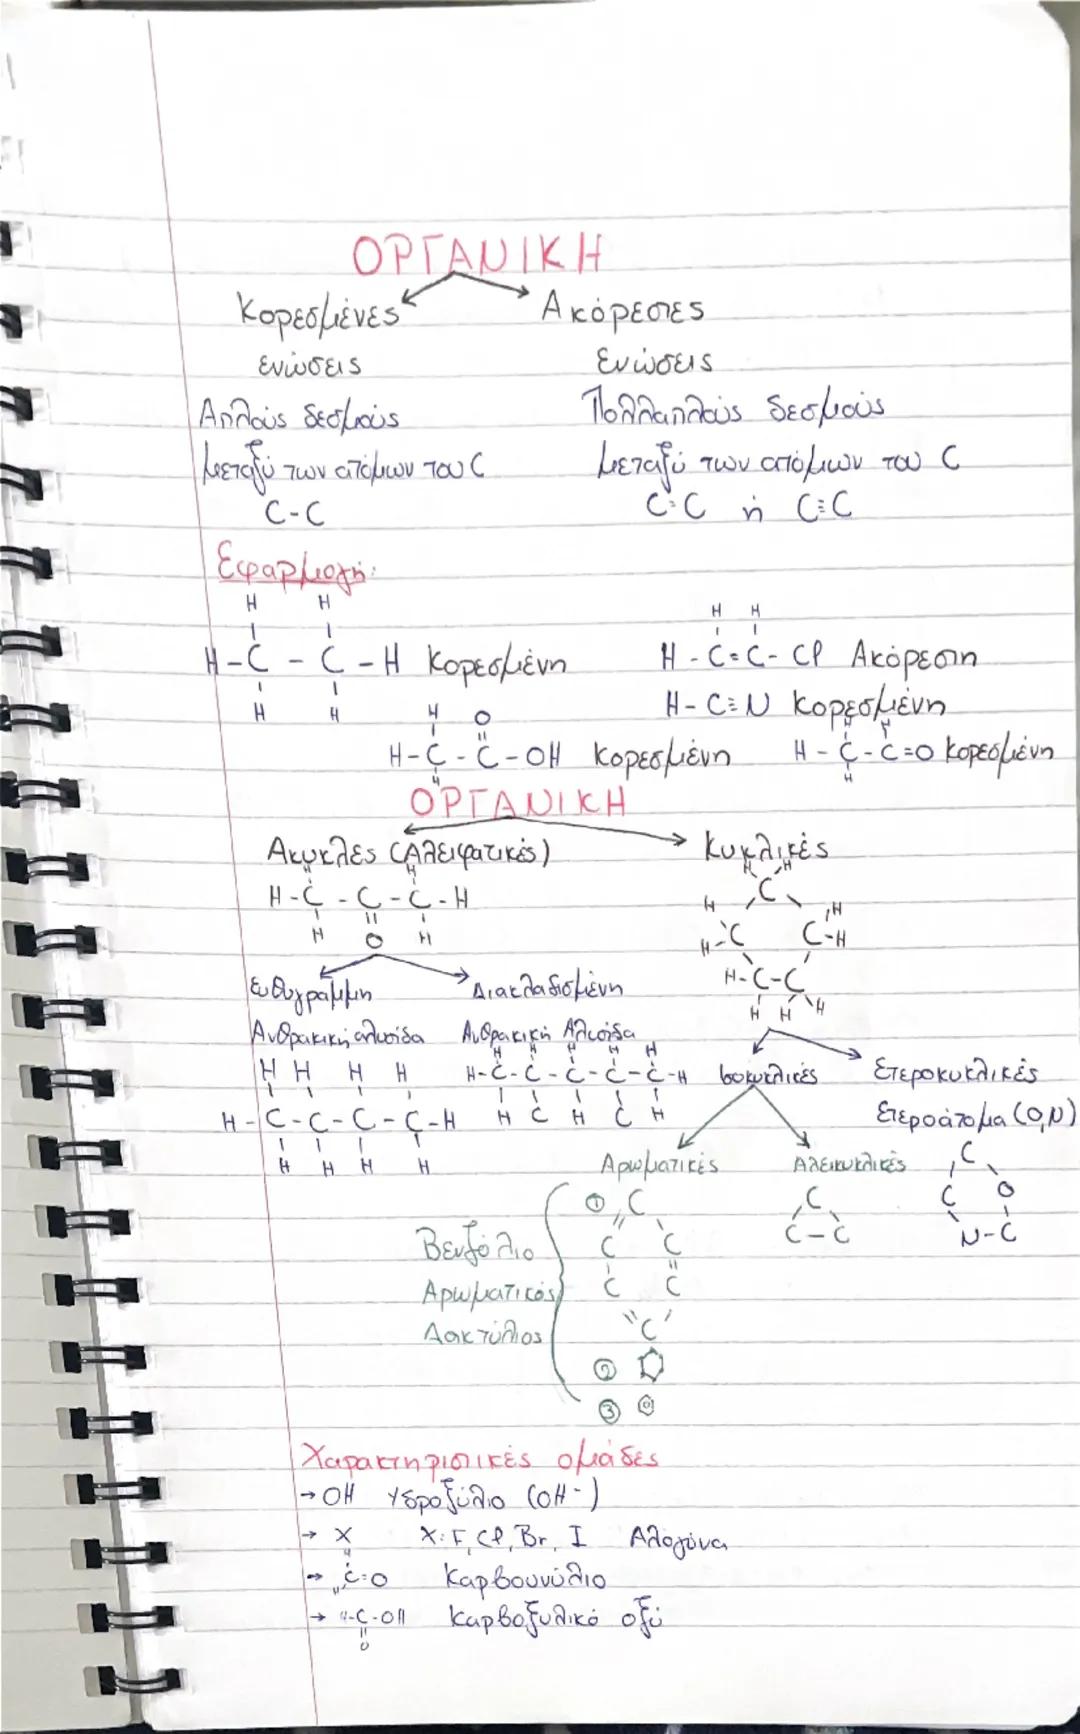 ΟΡΓΑΝΙΚΗ
Κορεσμένες Ακόρεστες
ενώσεις Ενώσεις
Απλούς δεσμούς Πολλαπλούς δεσμούς
μεταξύ των ατόμων του C μεταξύ των ατόμων του C
C-C C=C ή C≡C
Εφαρμογή:
H H H H
H-C - C-H Κορεσμένη H-C=C-Cl Ακόρεστη
H H H-C≡N Κορεσμένη
H O H H
H-C-C-OH Κορεσμένη H-C-C=O Κορεσμένη
H H
ΟΡΓΑΝΙΚΗ
Ακυκλες (Αλειφατικές) Κυκλικές
H H H H
H-C-C-C-H C
H O H H H
H-C C-H
Ευθυγραμμη Διακλαδισμένη H-C-C
H H H
Ανθρακική αλυσίδα Ανθρακική Αλυσίδα
H H H H H H H H H
H-C-C-C-C-H Ισοκυκλικές Ετεροκυκλικές
H-C-C-C-C-H H C H C H Ετεροάτομα (O,N)
H H H H Αρωματικές Αλεικυκλικές C
① C C C O
Βενζόλιο C C C-C N-C
Αρωματικός C C
Δακτύλιος C
②
③
Χαρακτηριστικές ομάδες
→ OH Υδροξύλιο (OH-)
→ X X: F, Cl, Br, I Αλογόνα
→ C=O Καρβουνύλιο
→ -C-OH Καρβοξυλικό οξύ
O